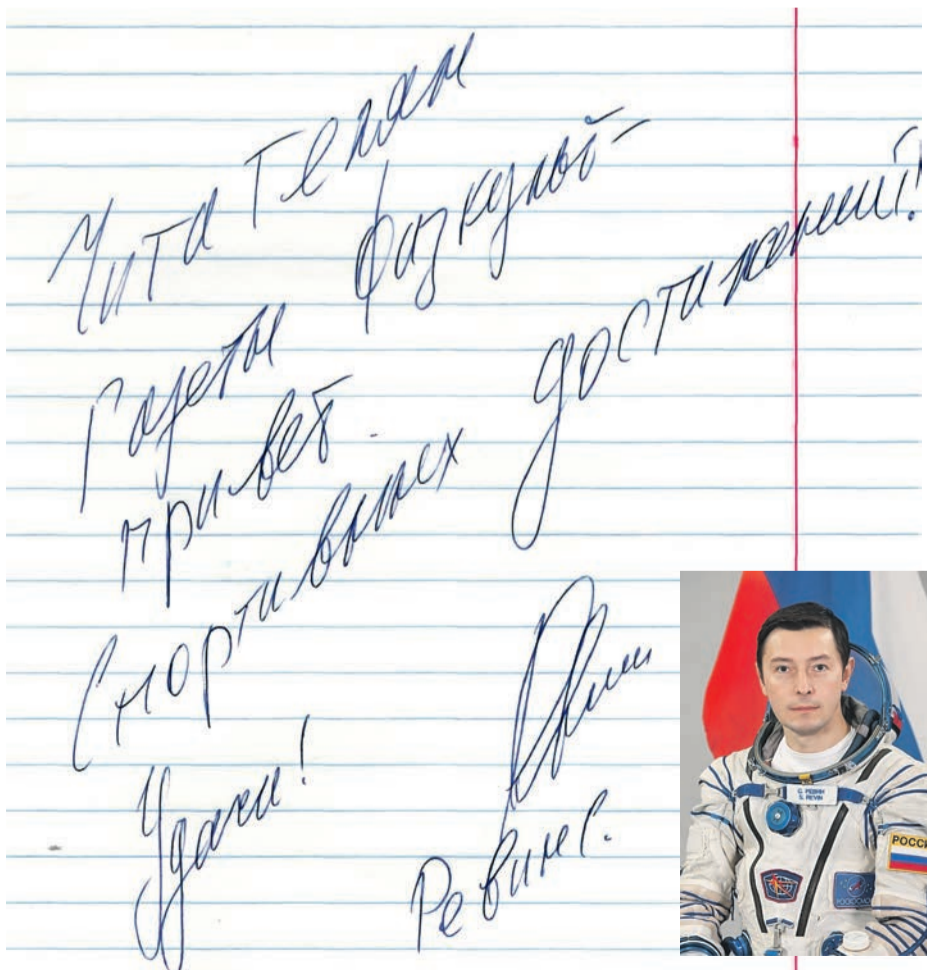 Читателям
газеты Физкульт-
привет.
Спортивных достижений!
Удачи!
Ревин С.
С. РЕВИН
S. REVIN
РОССИ